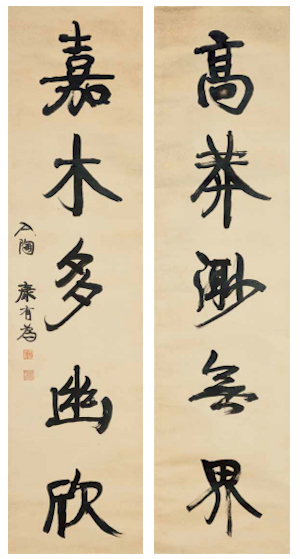 高莽渺無界
嘉木多幽欣
陶 康有為